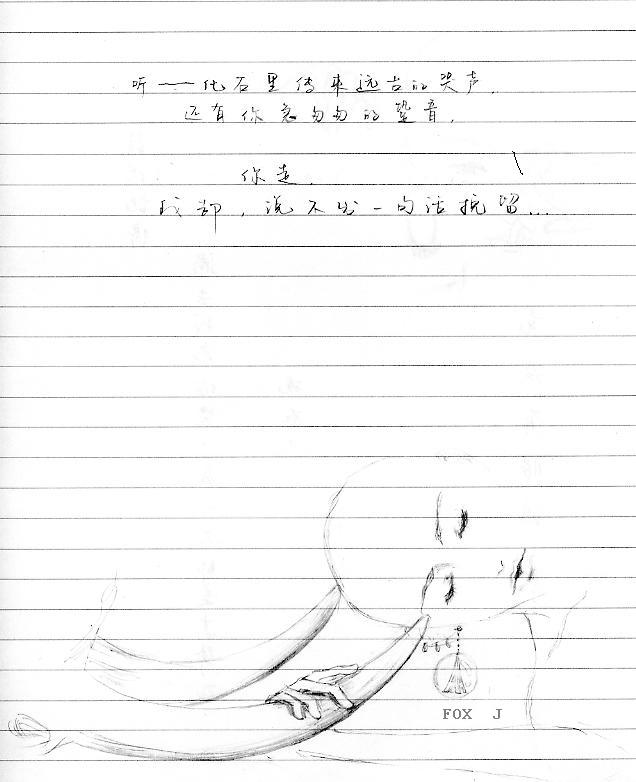 听——化石里传来远古的哭声.
还有你急匆匆的跫音.
你走.
我却,说不出一句话挽留...
FOX J